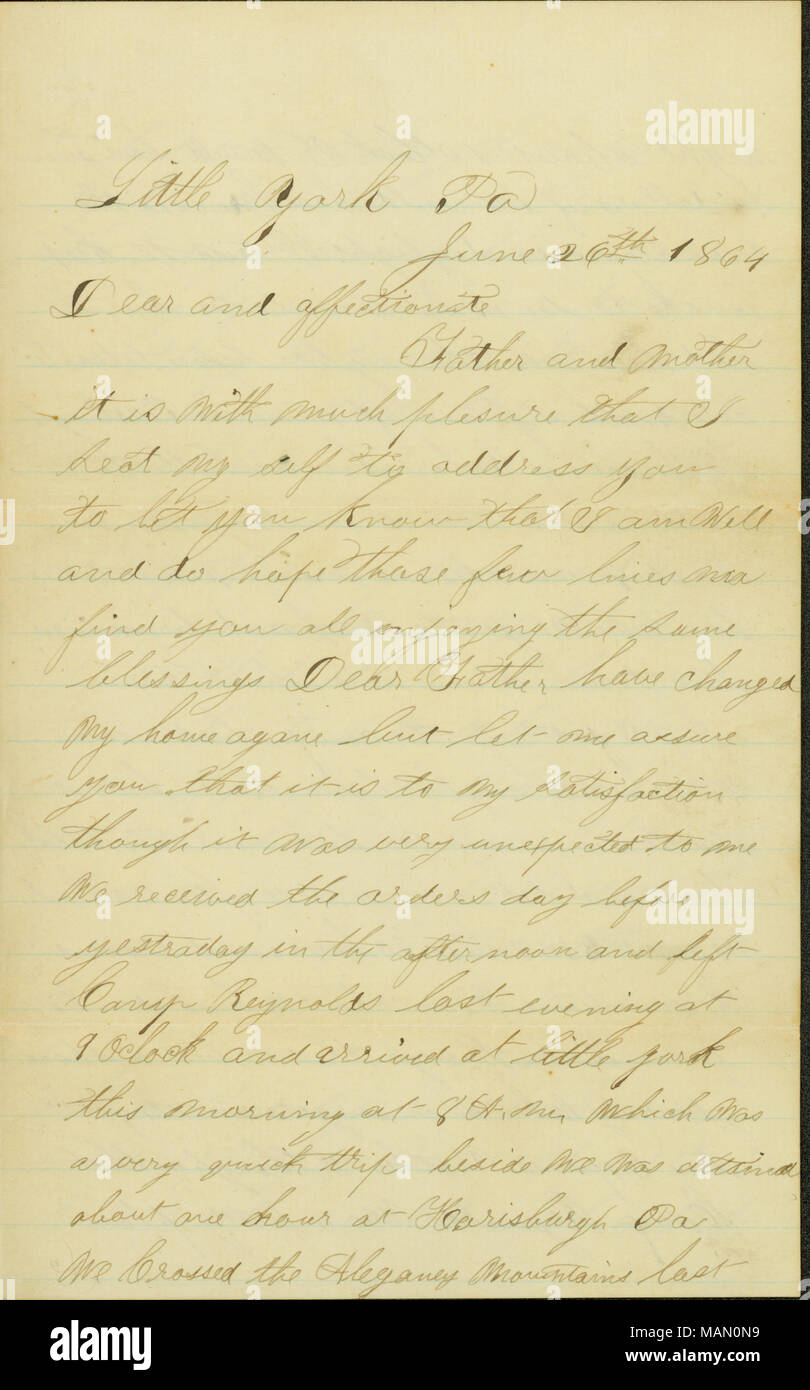 Little York Pa
June 26th 1864
Dear and affectionate
Father and Mother
it is with much plesure that I
seat my self to address you
to let you know that I am Well
and do hope these few lines ma
find you all enjoying the same
blessings Dear Father have changed
My home agane but let me assure
you that it is to my satisfaction
though it was very unexpected to me
We received the orders day before
yestraday in the afternoon and left
Camp Reynolds last evening at
9 Oclock and arrived at little york
this morning at 8 A. M. Which Was
a very quick trip beside We was
about one hour at Harisburgh Pa
We Crossed the Aleganey Mountains last
alamy
alamy
alamy
a
a
a
a
a
a
a
a
alamy
Image ID: MAN0N9
www.alamy.com